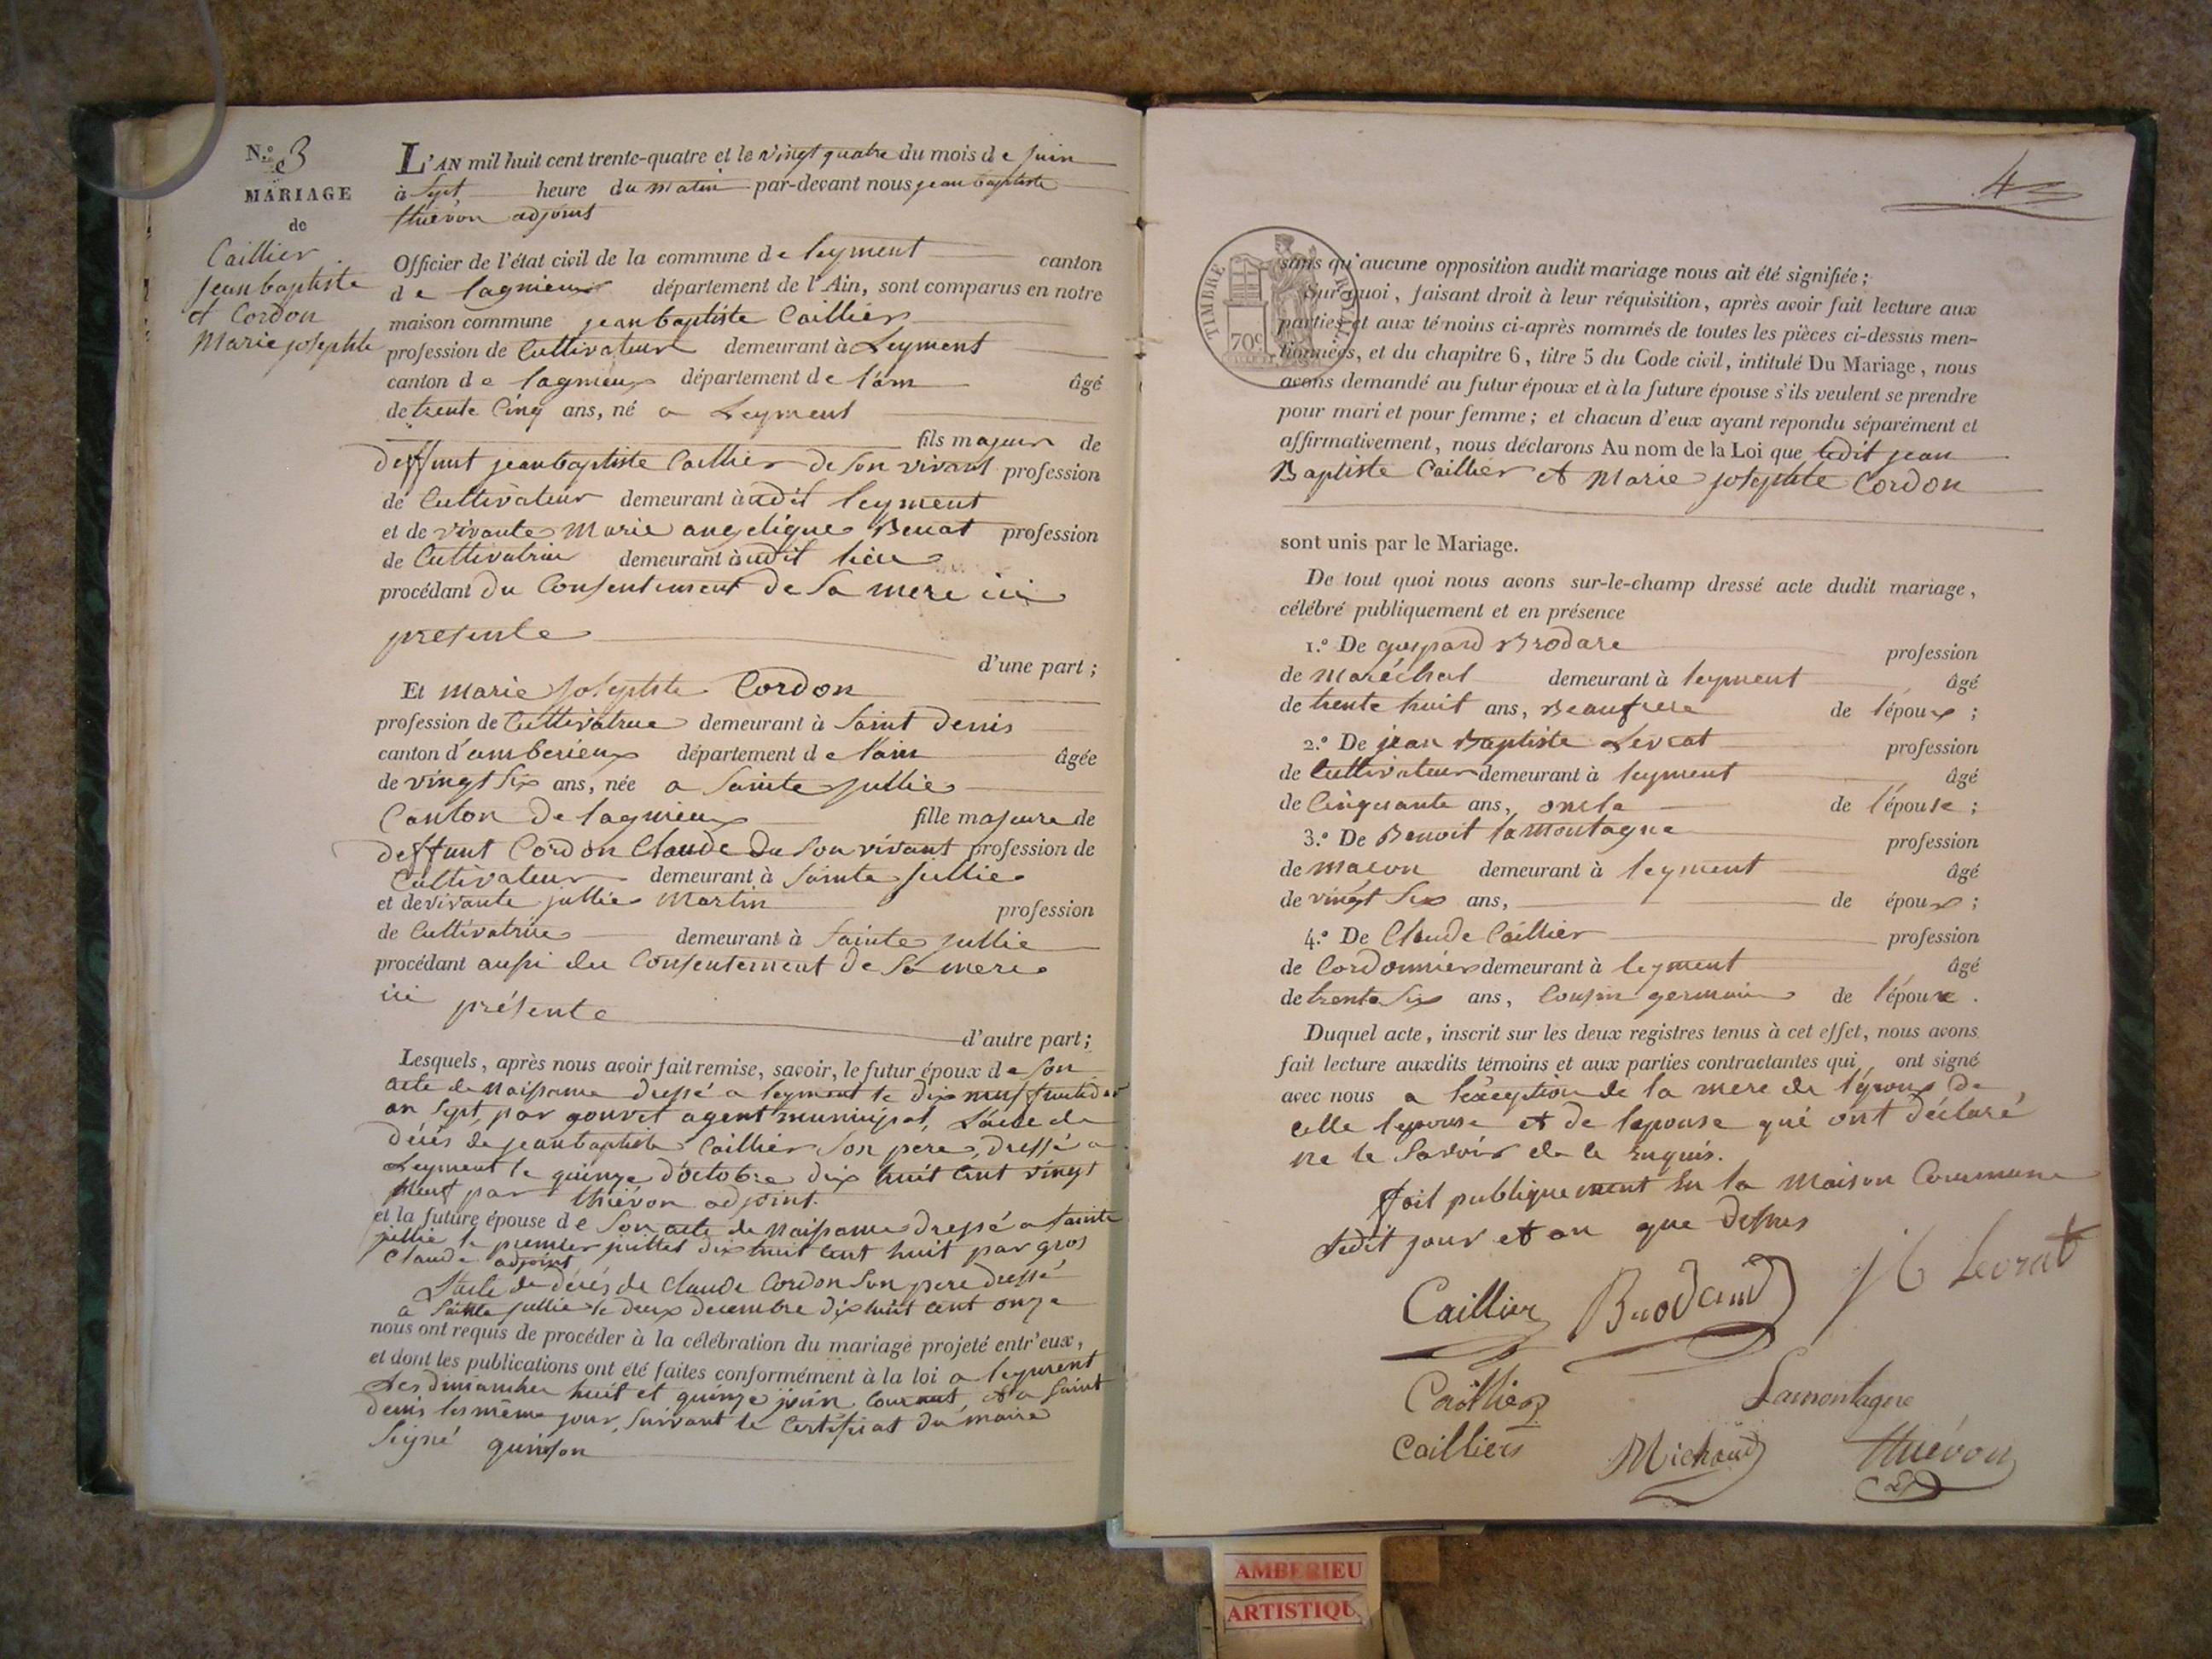 N.º 3
MARIAGE
de
Caillier
Jean baptiste
et Cordon
Marie josephte
L'AN mil huit cent trente-quatre et le vingt quatre du mois de juin
à sept heure du matin par-devant nous jean baptiste
thiévon adjoint
Officier de l'état civil de la commune de leyment canton
de lagnieux département de l'Ain, sont comparus en notre
maison commune jean baptiste Caillier
profession de Cultivateur demeurant à Leyment
canton de lagnieux département de l'ain âgé
de trente cinq ans, né a Leyment
fils majeur de
deffunt jean baptiste Caillier de son vivant profession
de Cultivateur demeurant à udit leyment
et de vivante Marie angelique Benat profession
de Cultivatrice demeurant à udit lieu
procédant du Consentement de sa mere ici
presente
d'une part ;
Et marie josephte Cordon
profession de Cultivatrice demeurant à Saint denis
canton d'amberieux département de l'ain âgée
de vingt six ans, née a Sainte jullie
Canton de lagnieux fille majeure de
deffunt Cordon Claude du son vivant profession de
Cultivateur demeurant à Sainte jullie
et de vivante jullie Martin profession
de Cultivatrice demeurant à Sainte jullie
procédant aussi du Consentement de sa mere
ici présente
d'autre part ;
Lesquels, après nous avoir fait remise, savoir, le futur époux de son
acte de naissance dressé a leyment le dix neuf fructidor
an sept, par gouvet agent municipal, L'acte de
décés de jean baptiste Caillier son pere, dressé a
Leyment le quinze d'octobre dix huit cent vingt
neuf par thiévon adjoint.
et la future épouse de son acte de naissance dressé a Sainte
jullie le premier juillet dix huit cent huit par gros
Claude adjoint
L'acte de décés de Claude Cordon son pere dressé
a Sainte jullie le deux decembre dix huit cent onze
nous ont requis de procéder à la célébration du mariage projeté entr'eux,
et dont les publications ont été faites conformément à la loi a leyment
les dimanches huit et quinze juin courant, et a Saint
denis les même jour, suivant le Certificat du maire
Signé quinson
4
TIMBRE ROYAL
70c
sans qu'aucune opposition audit mariage nous ait été signifiée ;
Sur quoi, faisant droit à leur réquisition, après avoir fait lecture aux
parties et aux témoins ci-après nommés de toutes les pièces ci-dessus men-
tionnées, et du chapitre 6, titre 5 du Code civil, intitulé Du Mariage, nous
avons demandé au futur époux et à la future épouse s'ils veulent se prendre
pour mari et pour femme ; et chacun d'eux ayant repondu séparément et
affirmativement, nous déclarons Au nom de la Loi que ledit jean
Baptiste Caillier et Marie josephte Cordon
sont unis par le Mariage.
De tout quoi nous avons sur-le-champ dressé acte dudit mariage,
célébré publiquement et en présence
1.º De gaspard Brodare profession
de Maréchal demeurant à leyment âgé
de trente huit ans, Beaufrere de l'époux ;
2.º De jean Baptiste Levrat profession
de Cultivateur demeurant à leyment âgé
de Cinquante ans, oncle de l'épouse ;
3.º De Benoit lamontagne profession
de macon demeurant à leyment âgé
de vingt six ans, de époux ;
4.º De Claude Caillier profession
de Cordonnier demeurant à leyment âgé
de trente six ans, Cousin germain de l'époux .
Duquel acte, inscrit sur les deux registres tenus à cet effet, nous avons
fait lecture auxdits témoins et aux parties contractantes qui ont signé
avec nous a l'exception de la mere de l'époux de
celle lepouse et de lepouse qui ont déclaré
ne le savoir de ce Enquis.
fait publiquement En la Maison Commune
ledit jour et an que dessus
Caillier Brodard J B Levrat
Caillier Lamontagne
Cailliers Michaud thiévon
AMBERIEU
ARTISTIQU